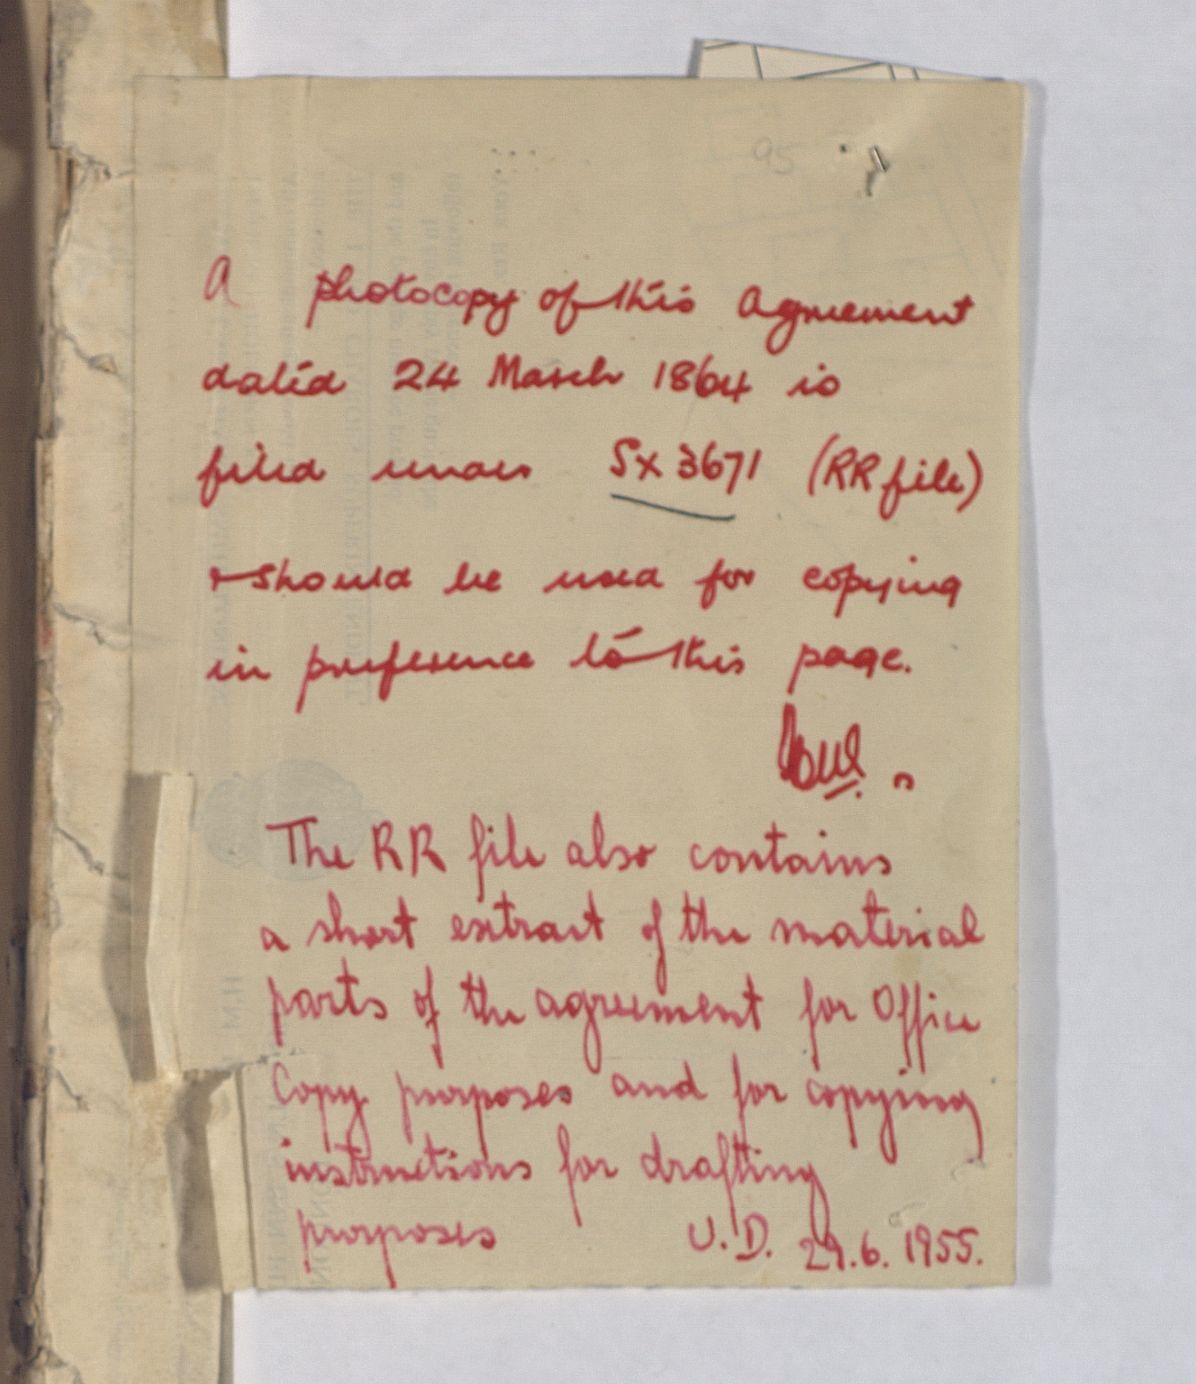 95
A photocopy of this Agreement
dated 24 March 1864 is
filed under SX 3671 (RR file)
+ should be used for copying
in preference to this page.
The RR file also contains
a short extract of the material
parts of the agreement for Office
Copy purposes and for copying
instructions for drafting
purposes U.D. 29.6.1955.